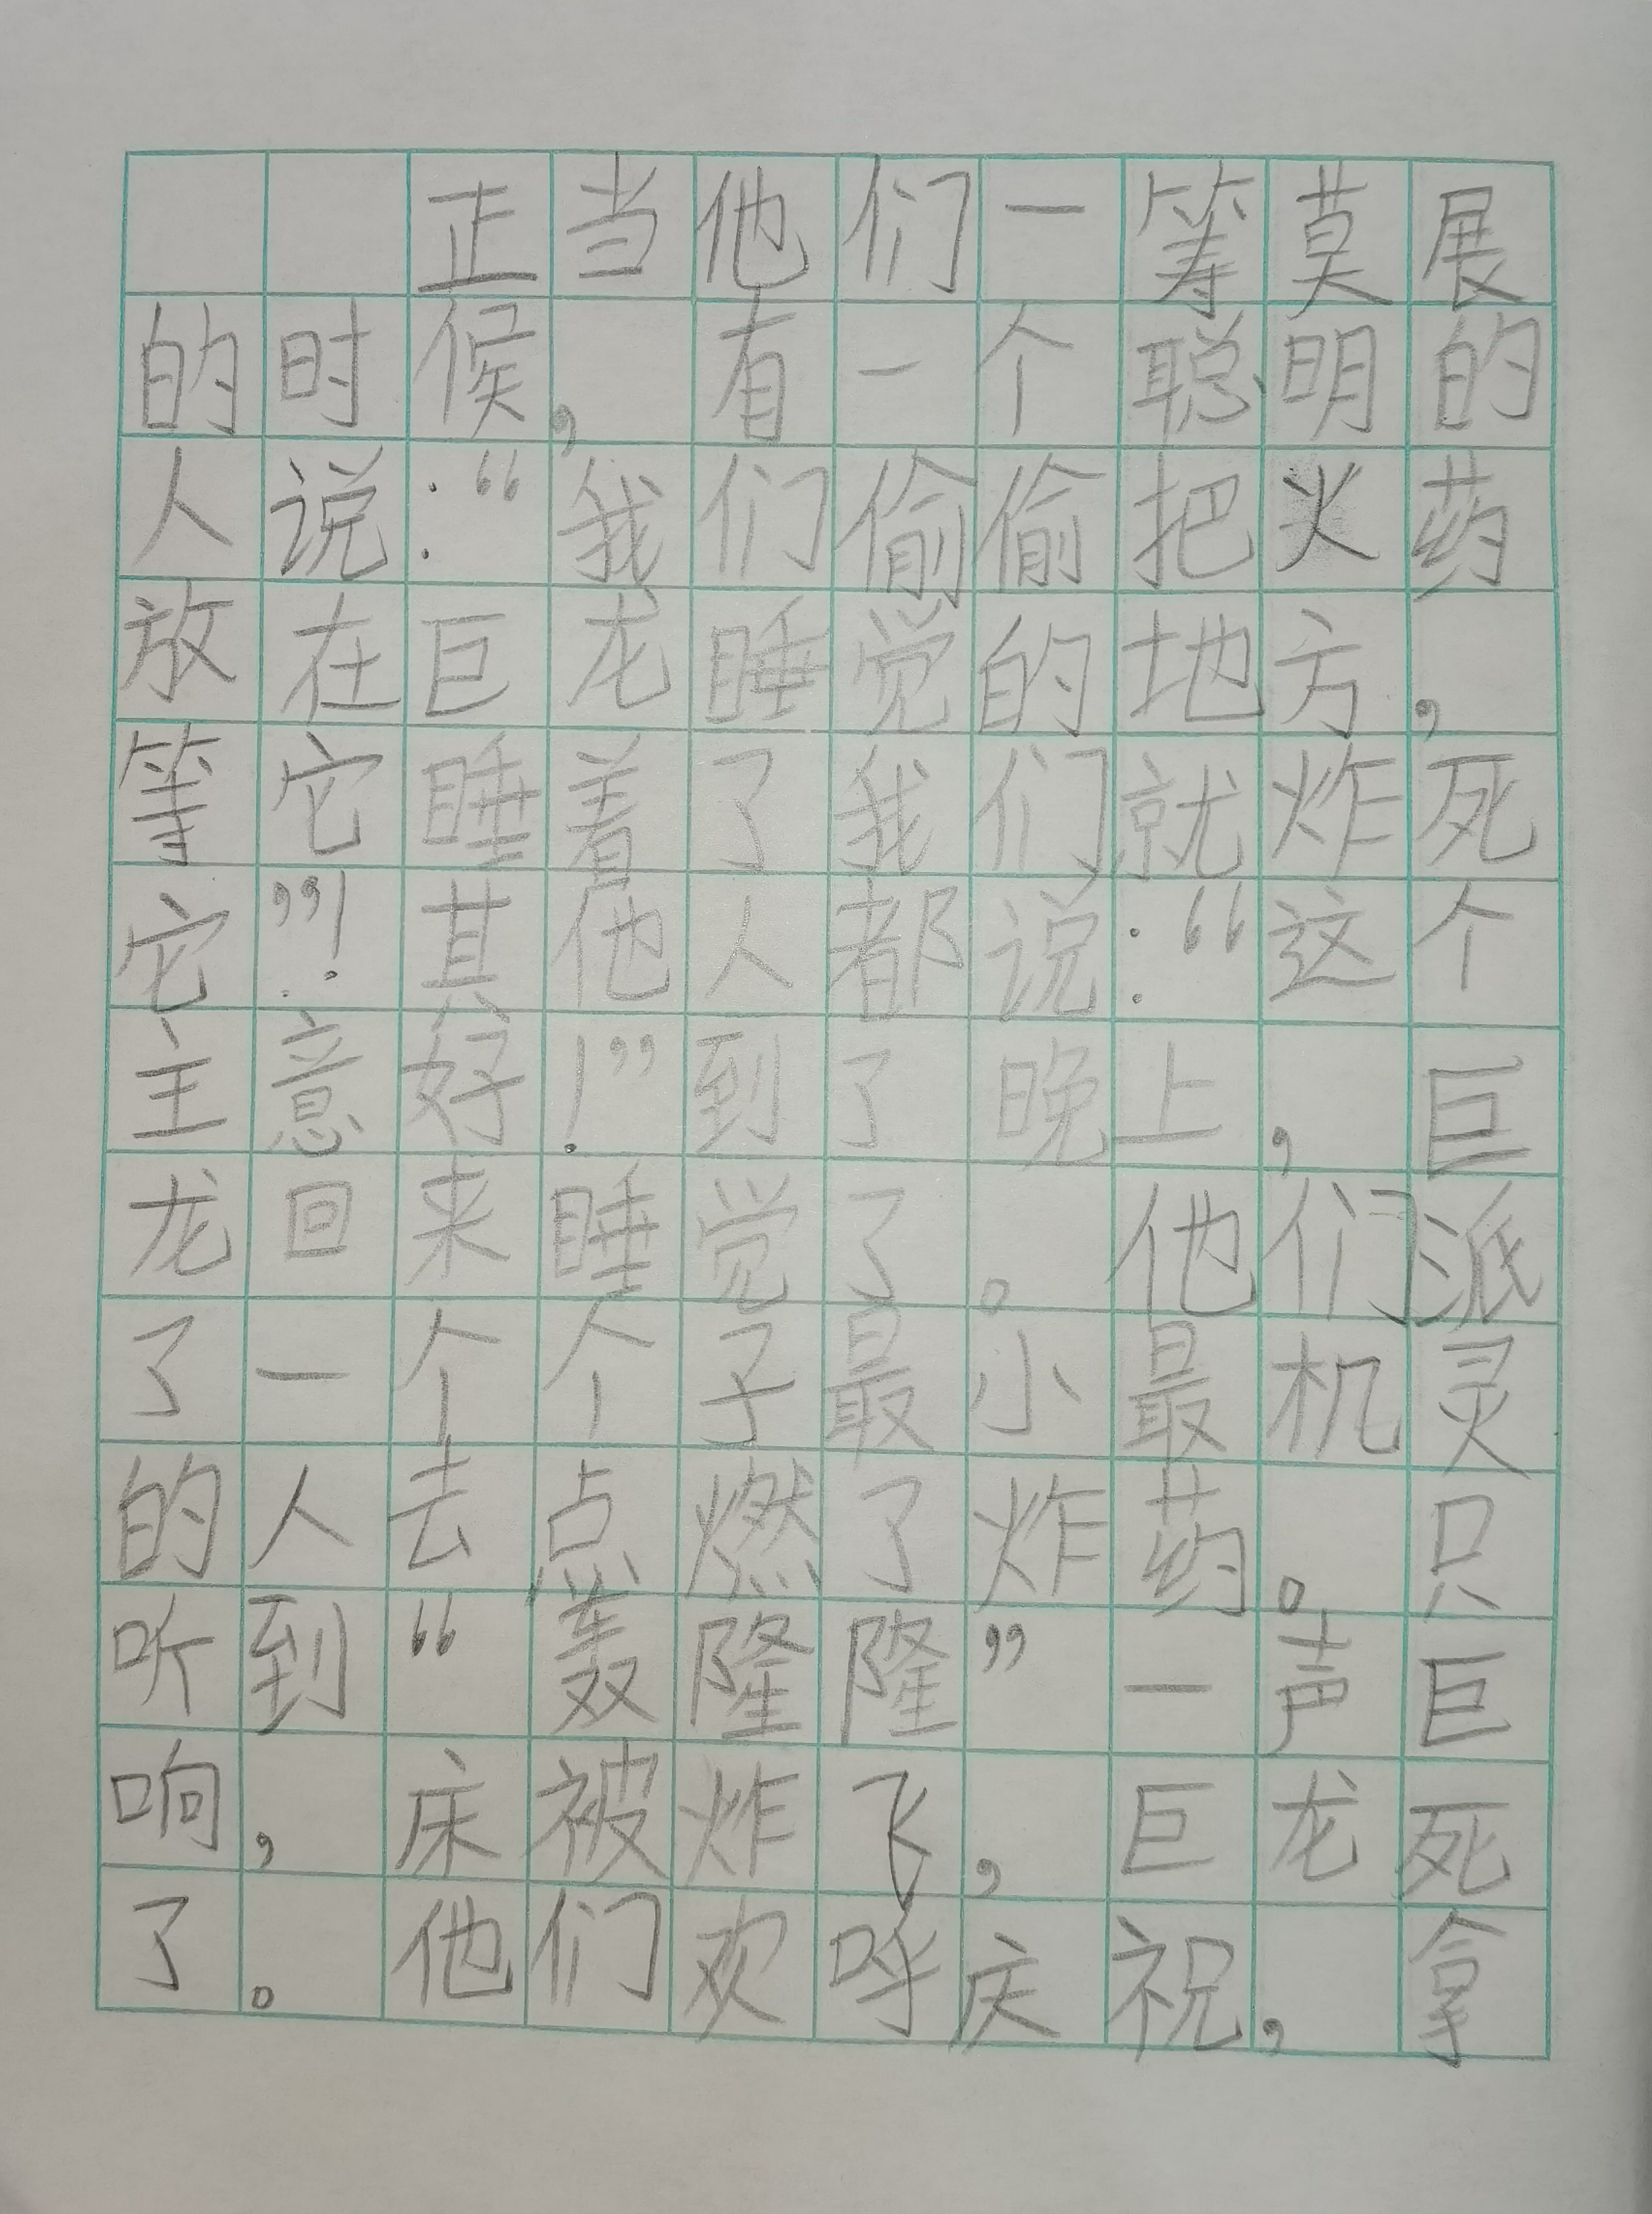 正当他们一筹莫展
的时候，有一个聪明的
人说：“我们偷偷把火药
放在巨龙睡觉的地方，
等它睡着了我们就炸死
它”！其他人都说：“这个
主意好！”到了晚上，巨
龙回来睡觉了。他们派
了一个个子最小最机灵
的人去点燃了炸药。只
听到“轰隆隆”一声巨
响，床被炸飞，巨龙死
了。他们欢呼庆祝，拿